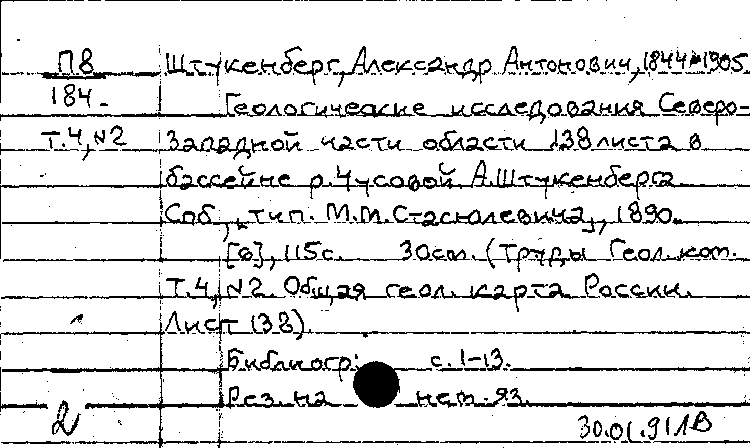 П8 Штукенберг, Александр Антонович, 1844-1905.
184- Геологические исследования Северо-
Т.4, №2 Западной части области 138 листа в
бассейне р. Чусовой А. Штукенберга
Спб, "тип. М.М. Стасюлевича", 1890.
[6], 115с. 30см. (Труды Геол. ком.
Т.4, №2. Общая геол. карта России.
Лист 138).
Библиогр: с. 1-13.
Рез. на нем. яз.
2 30.01.91 ЛВ